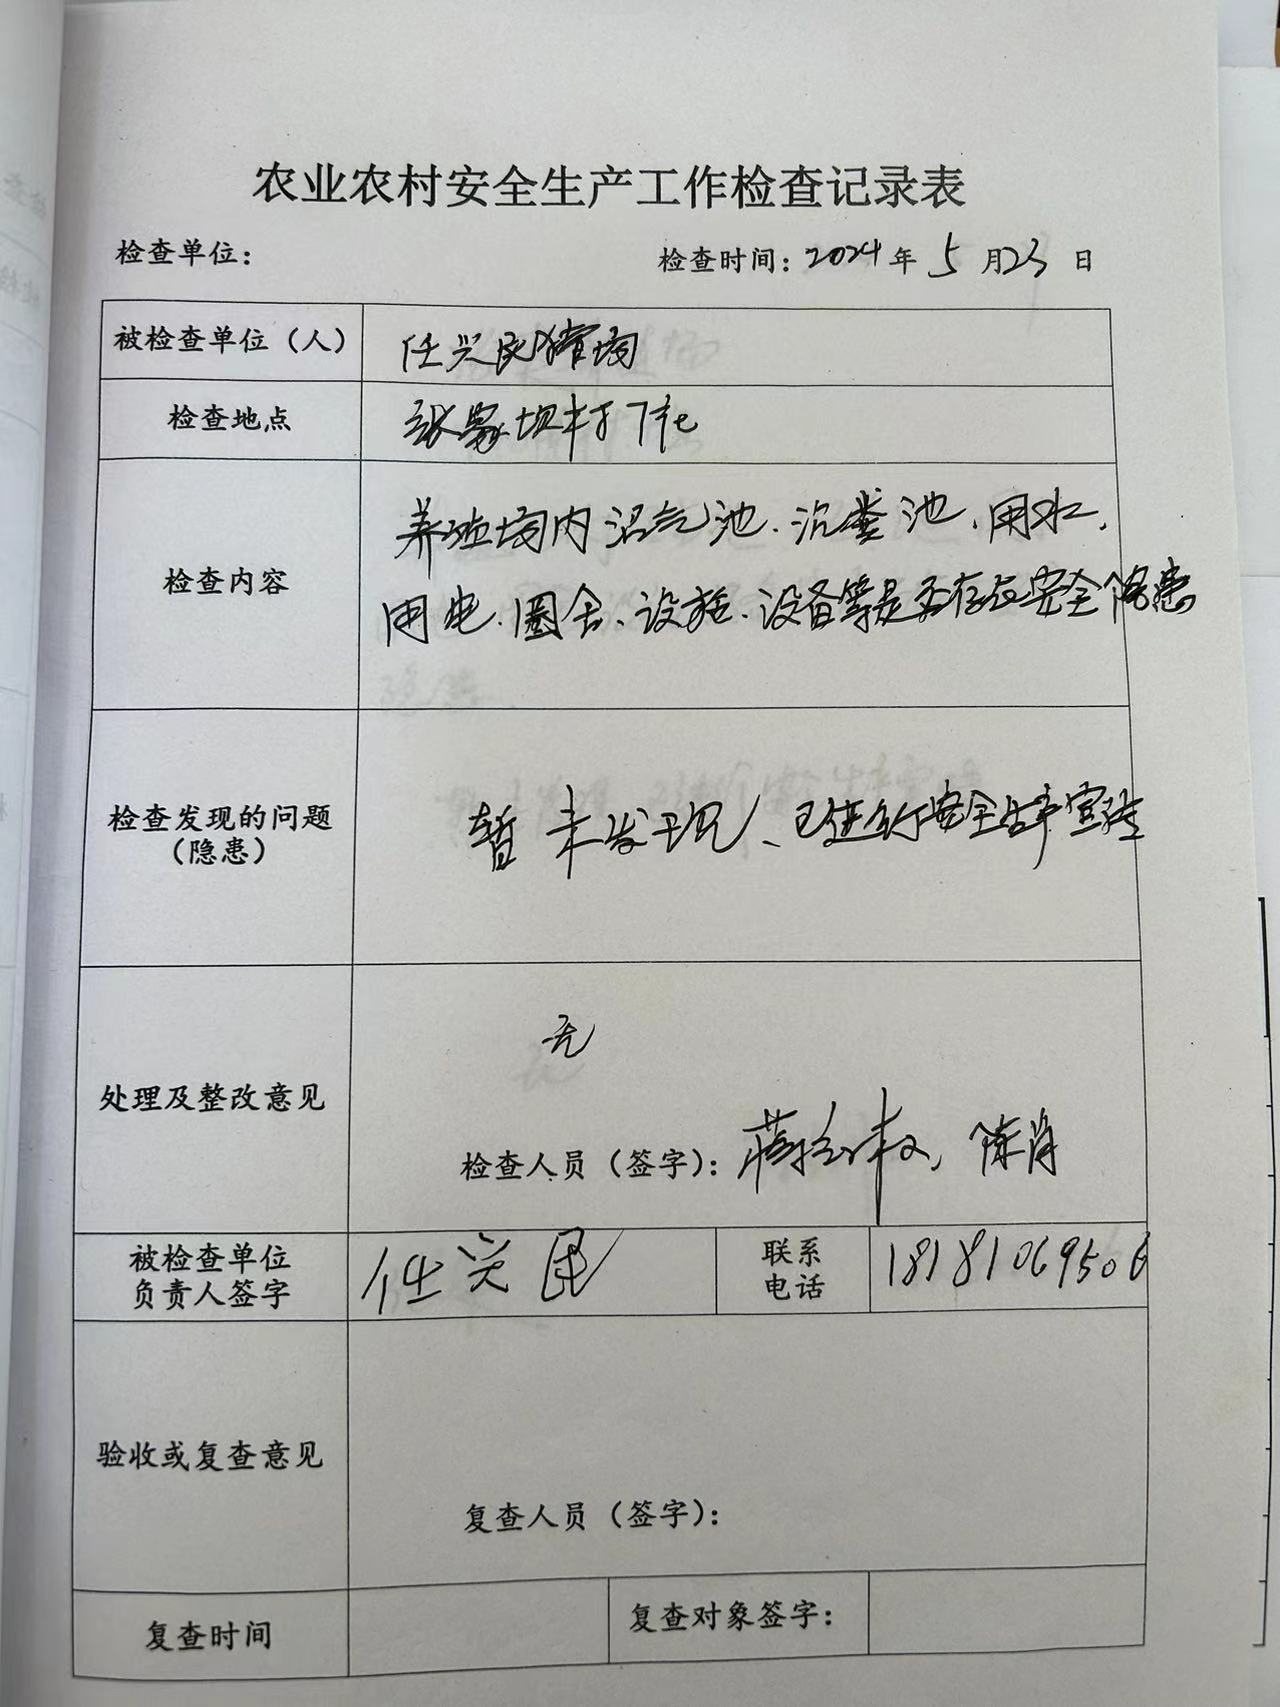 农业农村安全生产工作检查记录表
检查单位： 检查时间：2024年5月23日
被检查单位（人） 任兴民猪场
检查地点 张家坝村7社
检查内容 养殖场内沼气池、沉粪池、用水、
用电、圈舍、设施、设备等是否存在安全隐患
检查发现的问题
（隐患） 暂未发现、已进行安全生产宣传
处理及整改意见 无
检查人员（签字）： 陈肖
被检查单位
负责人签字 任兴民 联系
电话 18181069506
验收或复查意见
复查人员（签字）：
复查时间 复查对象签字：